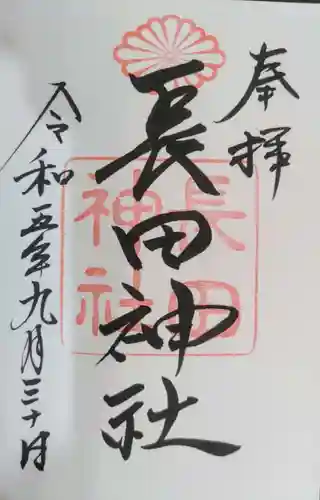 奉拝
長田神社
長田
神社
令和五年九月三十日